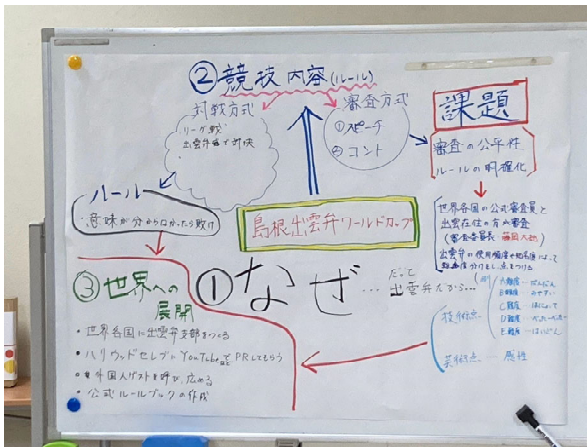 ②競技内容(ルール)
対戦方式
リーグ戦
出雲弁で対決
審査方式
①スピーチ
②コント
課題
審査の公平件
ルールの明確化
世界各国の公式審査員と
出雲在住の方が審査
(審査委員長
出雲弁の使用頻度や
難易度分けをし点をつける
ルール
意味が分からなかったら敗け
島根出雲弁ワールドカップ
①なぜ…だって
出雲弁だから…
③世界への
展開
・世界各国に出雲弁支部をつくる
・ハリウッドセレブにYouTubeなどPRしてもらう
・外国人ゲストを呼び、広める
・公式ルールブックの作成
技術点
A難度
B難度
C難度
D難度
E難度
芸術点 — 感性